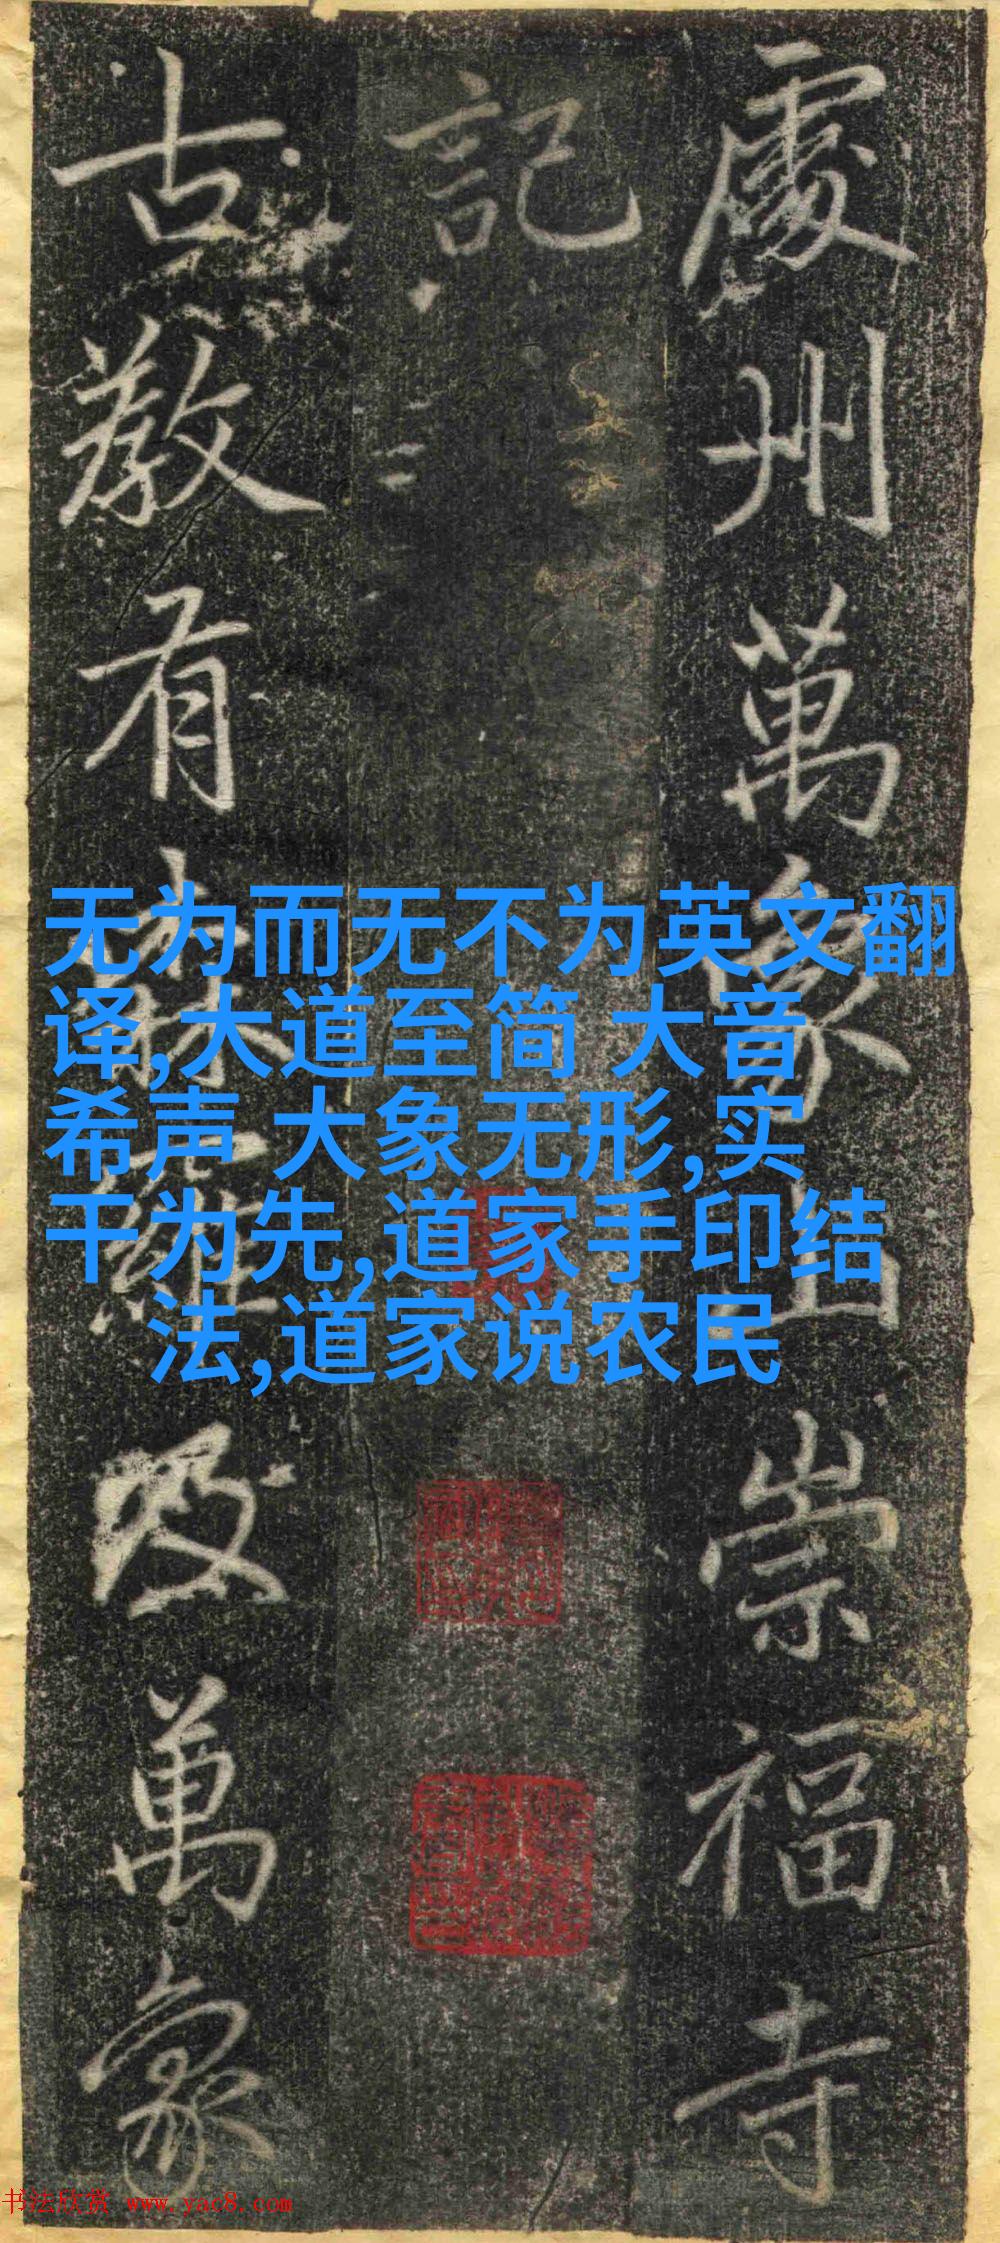 處州萬象山崇福寺
記
古教有森羅及萬象
无为而无不为英文翻
译,大道至简 大音
希声 大象无形,实
干为先,道家手印结
法,道家说农民
书法欣赏 www.yac8.com